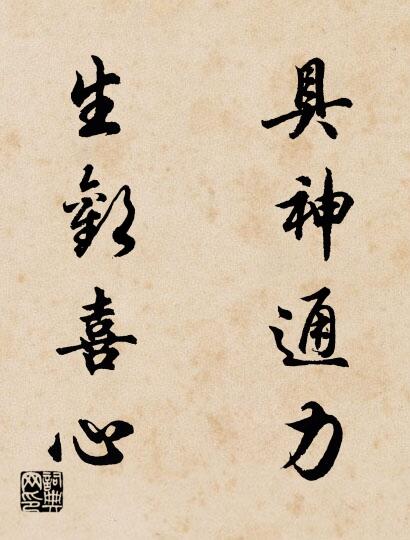 具神通力
生歡喜心
詞典網印